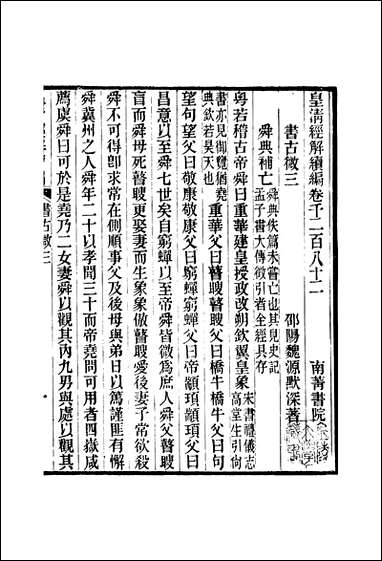 皇清經解續編卷千二百八十二
南菁書院
書古微三
邵陽魏源默深著
舜典補亡
舜典佚篇未嘗亡也其見史記
孟子書大傳徵引者全經具存
粵若稽古帝舜曰重華建皇授政改朔欽翼皇象
宋書禮儀志
高堂生引尙
書亦見御覽猶堯
典欽若昊天也
重華父曰瞽瞍瞽瞍父曰橋牛橋牛父曰句
望句望父曰敬康敬康父曰窮蟬窮蟬父曰帝顓頊顓頊父曰
昌意以至舜七世矣自窮蟬以至帝舜皆微為庶人舜父瞽瞍
盲而舜母死瞽瞍更娶妻而生象象傲瞽瞍愛後妻子常欲殺
舜不可得卽求常在側順事父及後母與弟日以篤謹匪有懈
舜冀州之人舜年二十以孝聞三十而帝堯問可用者四嶽咸
薦虞舜曰可於是堯乃二女妻舜以觀其內九男與處以觀其
書古微三